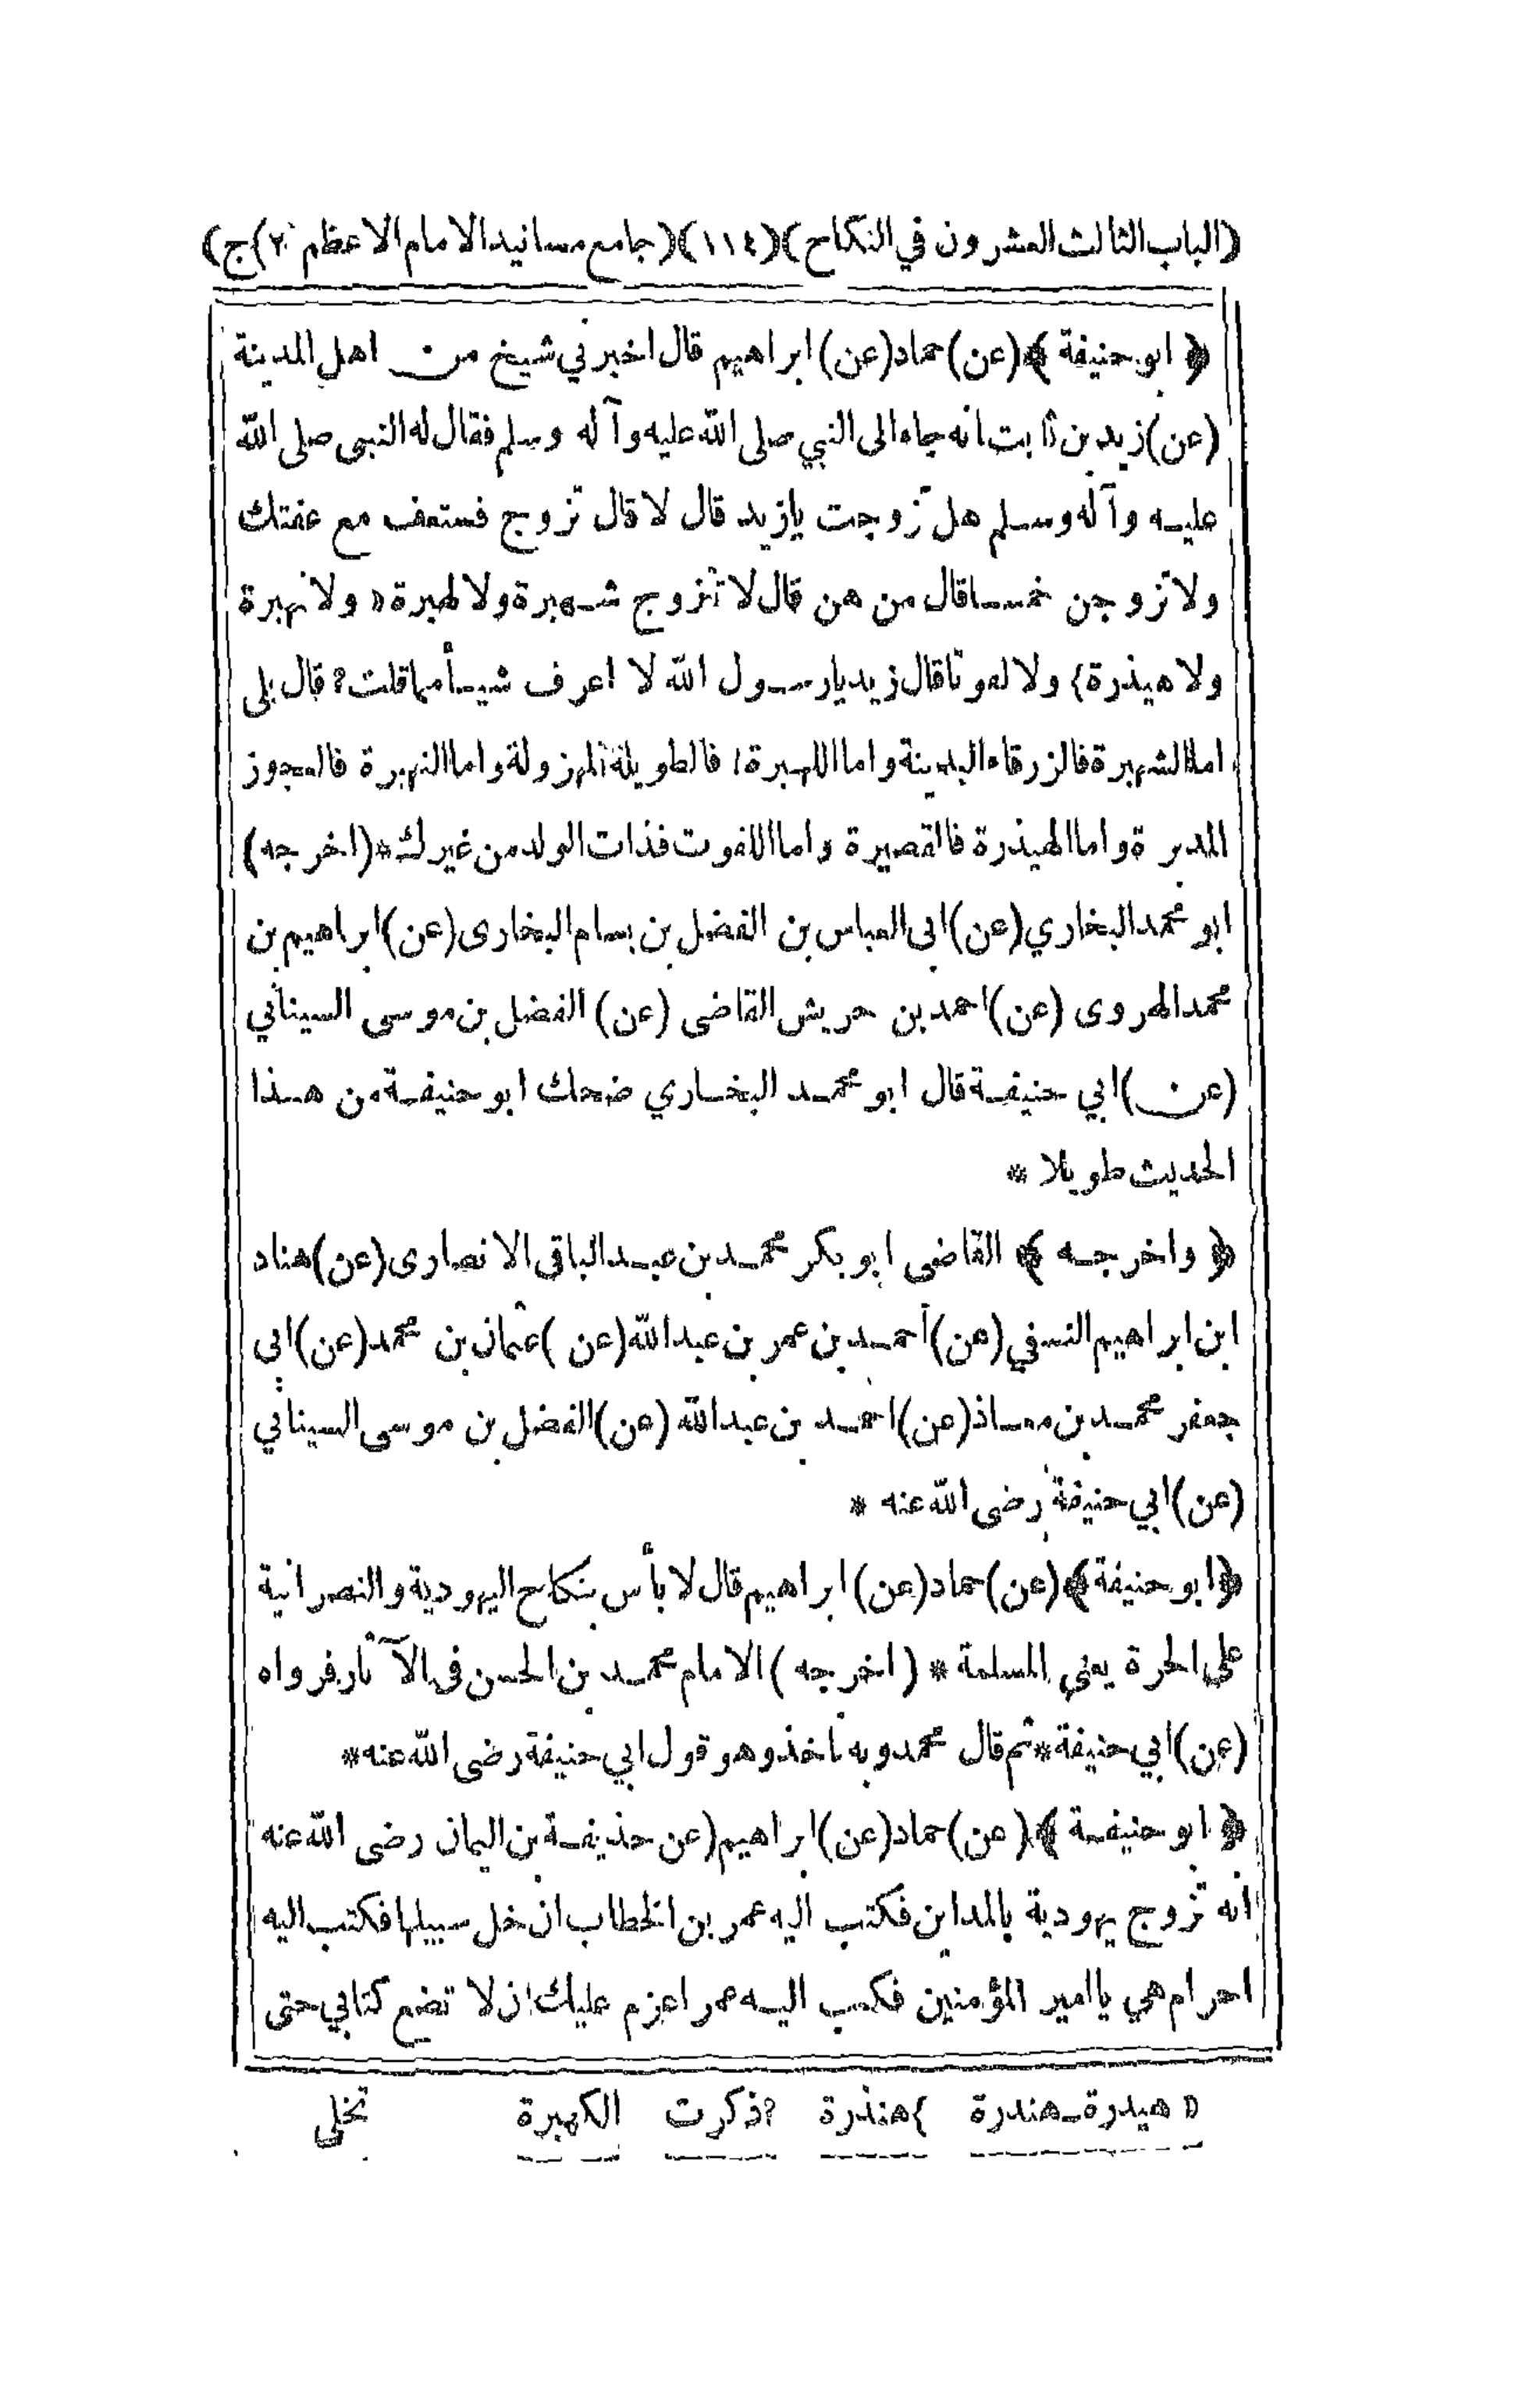 (الباب الثالث العشرون في النكاح) (١١٤) (جامع مسانيد الامام الاعظم ٢) ج)
﴿ ابو حنيفة ﴾ (عن) حماد (عن) ابراهيم قال اخبرني شيخ من اهل المدينة
(عن) زيد بن ثابت انه جاء الى النبي صلى الله عليه وآله وسلم فقال له النبي صلى الله
عليه وآله وسلم هل تزوجت يازيد قال لا قال تزوج فستعف مع عفتك
ولا تزوجن خمسا قال من هن قال لا تتزوج شهبرة ولا لهبرة (( ولا نهبرة
ولا هيذرة} ولا لفوتا قال زيد يارسول الله لا اعرف شيأ مما قلت؟ قال بلى
اما الشهبرة فالزرقاء البدينة واما اللهبرة فالطويلة المهزولة واما النهبرة فالعجوز
المدبرة واما الهيذرة فالقصيرة واما اللفوت فذات الولد من غيرك * (اخرجه)
ابو محمد البخاري (عن) ابى العباس بن الفضل بن بسام البخارى (عن) ابراهيم بن
محمد الهروى (عن) احمد بن حريش القاضى (عن) الفضل بن موسى السيناني
(عن) ابي حنيفة قال ابو محمد البخاري ضحك ابو حنيفة من هذا
الحديث طويلا *
﴿ واخرجه ﴾ القاضى ابو بكر محمد بن عبد الباقى الانصارى (عن) هناد
ابن ابراهيم النسفي (عن) أحمد بن عمر بن عبد الله (عن) عثمان بن محمد (عن) ابى
جعفر محمد بن معاذ (عن) احمد بن عبد الله (عن) الفضل بن موسى السيناني
(عن) ابي حنيفة رضى الله عنه *
﴿ ابو حنيفة ﴾ (عن) حماد (عن) ابراهيم قال لا بأس بنكاح اليهودية والنصرانية
على الحرة يعني المسلمة * (اخرجه) الامام محمد بن الحسن في الآثار فرواه
(عن) ابي حنيفة * ثم قال محمد وبه ناخذ وهو قول ابي حنيفة رضى الله عنه *
﴿ ابو حنيفة ﴾ (عن) حماد (عن) ابراهيم (عن حذيفة بن اليمان رضى الله عنه
انه تزوج يهودية بالمداين فكتب اليه عمر بن الخطاب ان خل سبيلها فكتب اليه
احرام هي ياامير المؤمنين فكتب اليه عمر اعزم عليك ان لا تضع كتابي حتى
(( هيدرة_هندرة }هنذرة ؟ذكرت الكهبرة تخلى